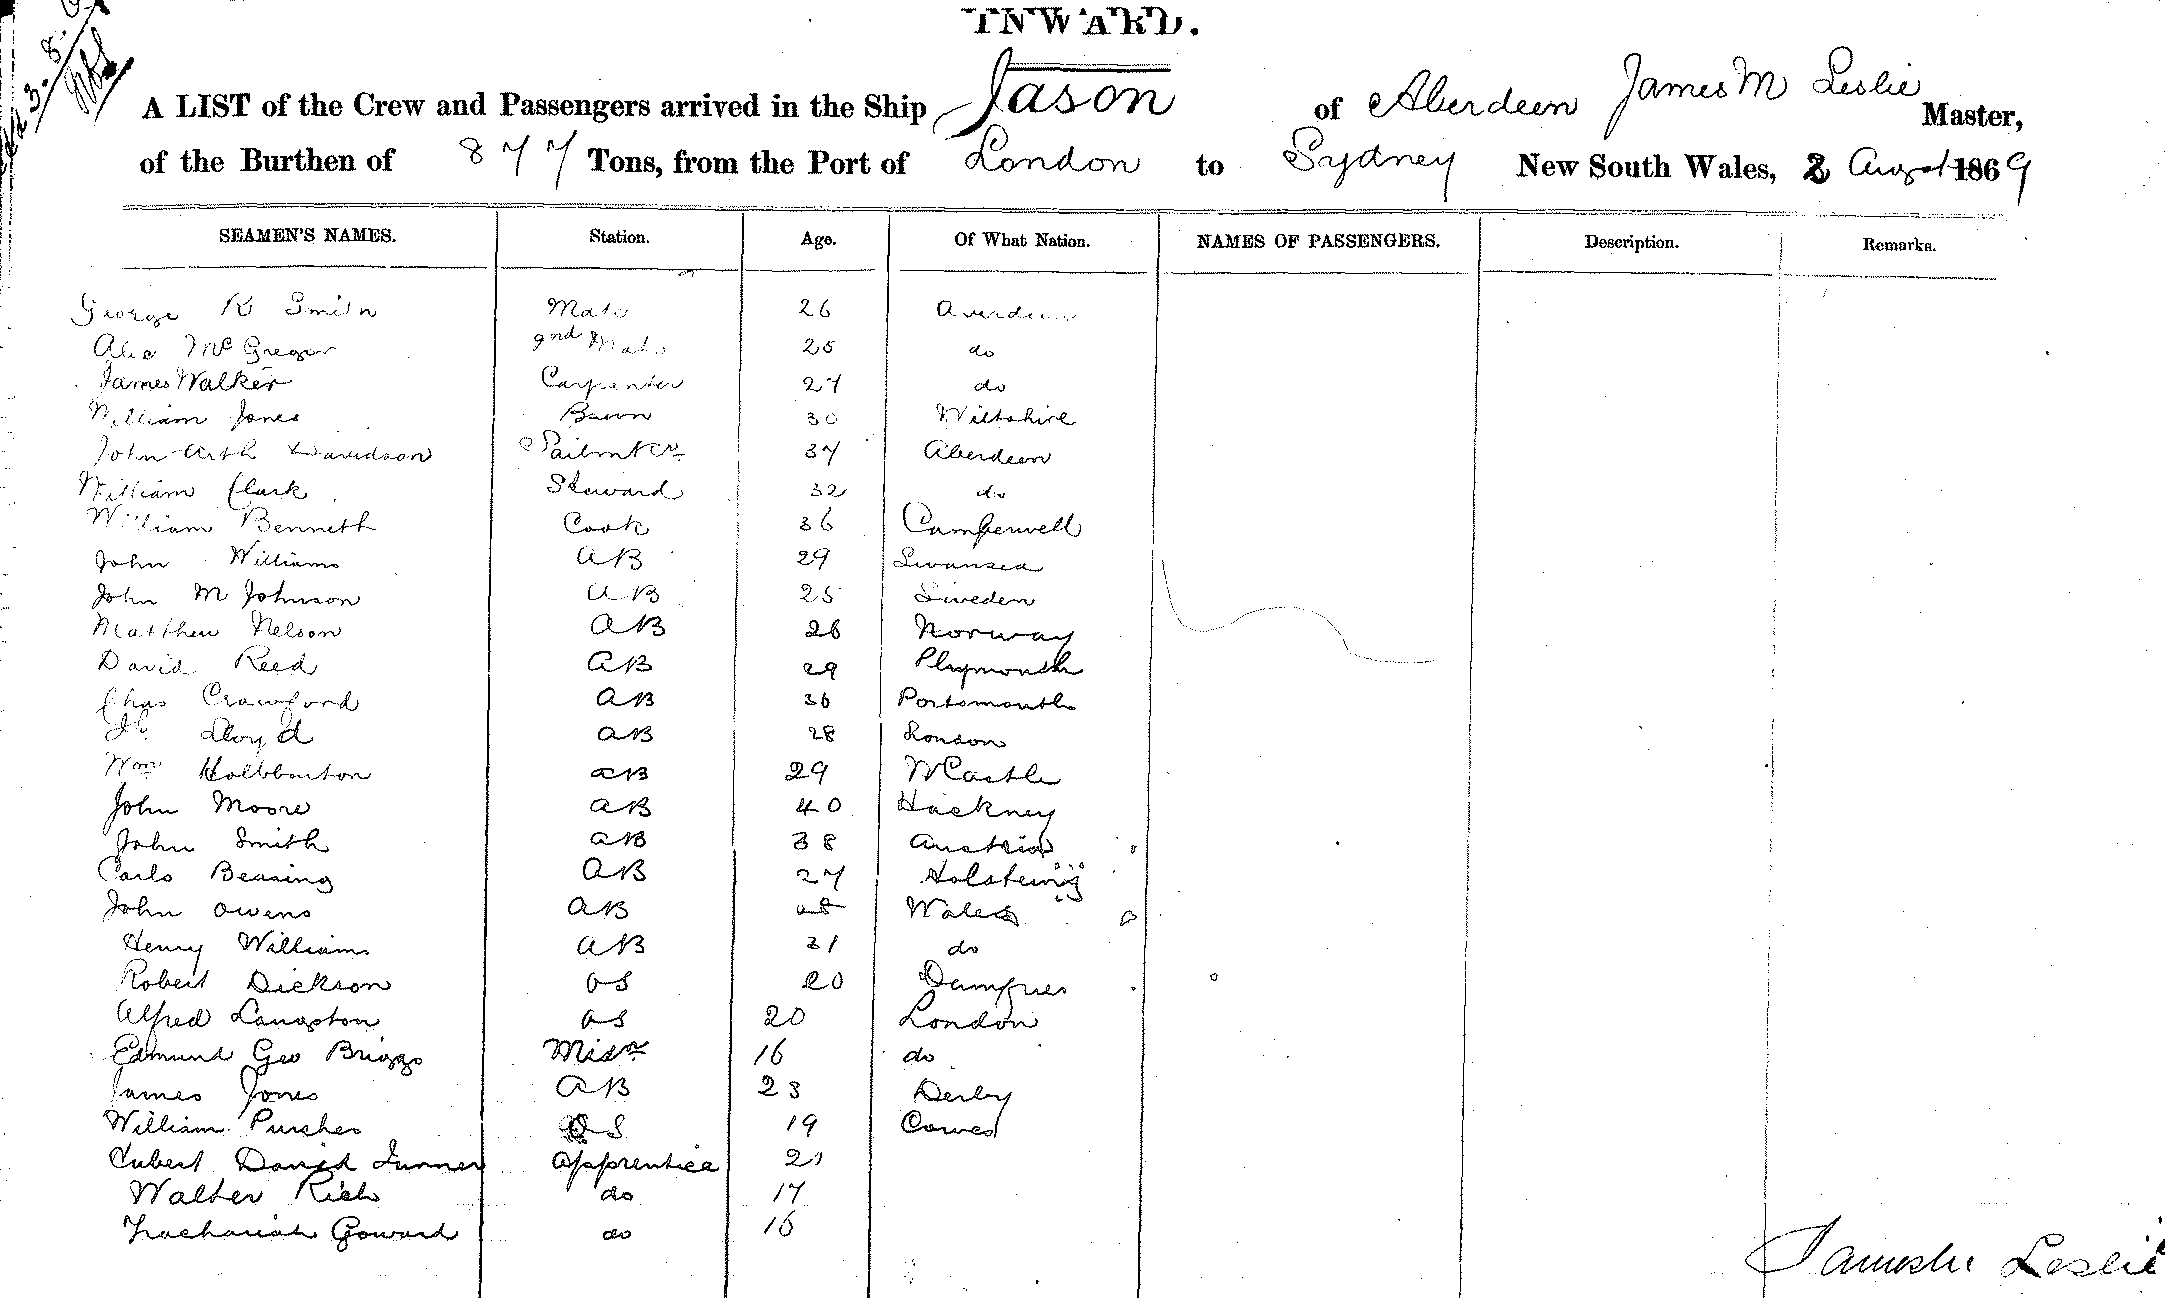 INWARD.
A LIST of the Crew and Passengers arrived in the Ship Jason of Aberdeen James M Leslie Master,
of the Burthen of 877 Tons, from the Port of London to Sydney New South Wales, 2 August 1869
SEAMEN'S NAMES. Station. Age. Of What Nation. NAMES OF PASSENGERS. Description. Remarks.
George R Smith Mate 26 Aberdeen
Alec McGregor 2nd Mate 25 do
James Walker Carpenter 27 do
William Jones 30 Wiltshire
John Arth Davidson Sailmker 37 Aberdeen
William Clark Steward 32 do
William Bennett Cook 36 Camberwell
John Williams AB 29 Swansea
John M Johnson AB 25 Sweden
Matthew Nelson AB 26 Norway
David Reed AB 29 Plymouth
Chas Crawford AB 36 Portsmouth
Lloyd AB 28 London
Wm AB 29 NCastle
John Moore AB 40 Hackney
John Smith AB 38 Austria
Carlo Bessing AB 27
John Owens AB Wales
Henry Williams AB 31 do
Robert Dickson OS 20 Dumfries
Alfred Langston OS 20 London
Edmund Geo Briggs 16 do
James Jones AB 23 Derby
William Purches OS 19 Cowes
Cubert David Turner Apprentice 21
Walter Rich do 17
Zachariah Goward do 16
Leslie